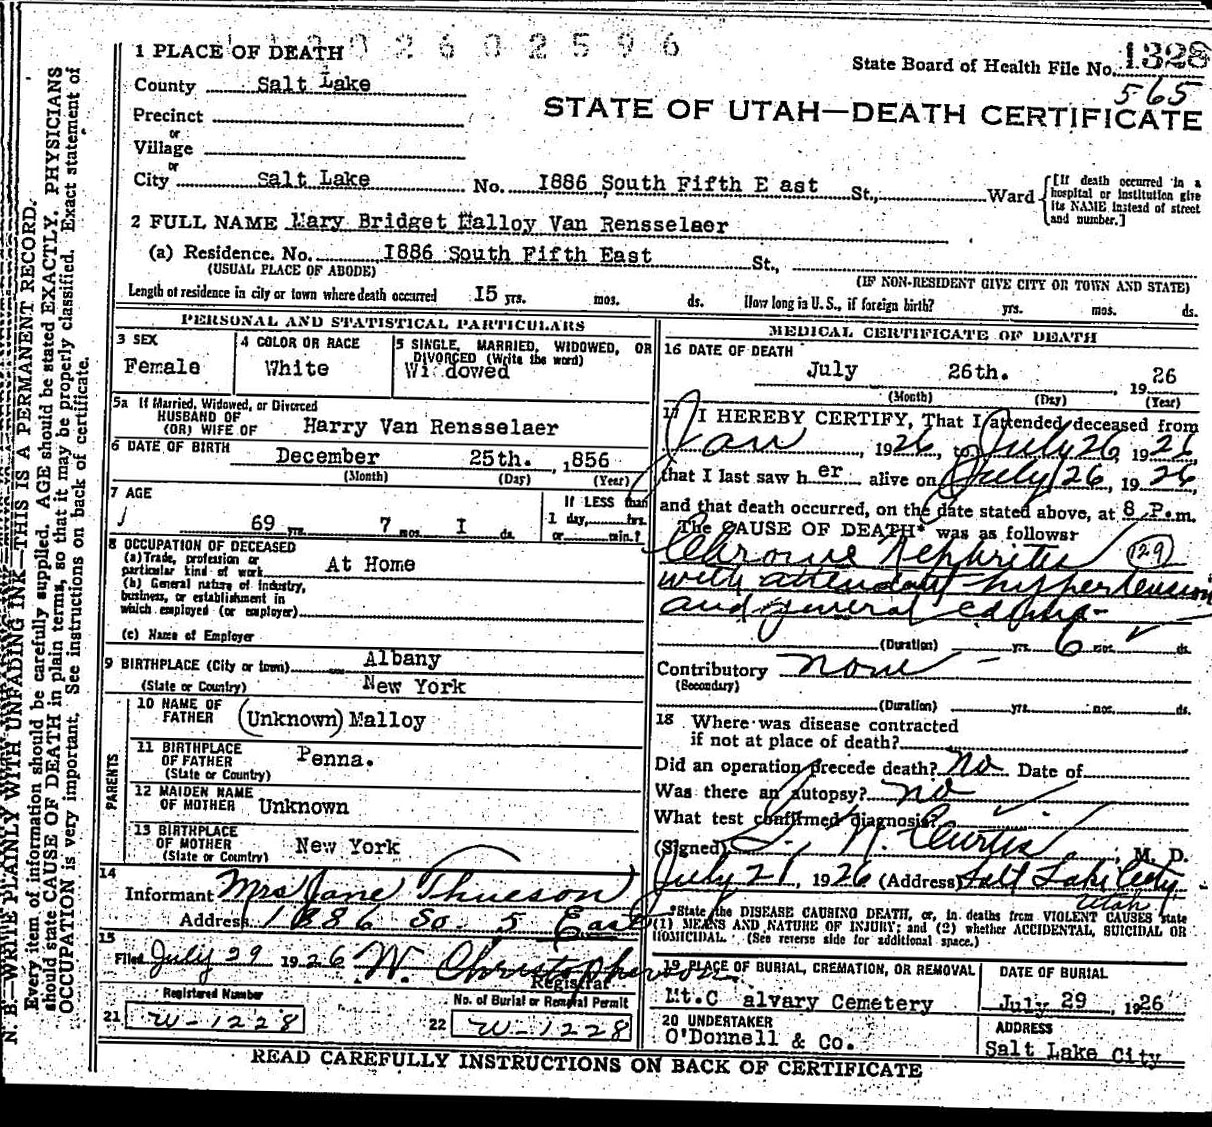 N. B.—WRITE PLAINLY WITH UNFADING INK—THIS IS A PERMANENT RECORD.
Every item of information should be carefully supplied. AGE should be stated EXACTLY. PHYSICIANS
should state CAUSE OF DEATH in plain terms, so that it may be properly classified. Exact statement of
OCCUPATION is very important. See instructions on back of certificate.
2602596
1 PLACE OF DEATH
State Board of Health File No. 1328
565
County Salt Lake
STATE OF UTAH—DEATH CERTIFICATE
Precinct
or
Village
or
City Salt Lake No. 1886 South Fifth E ast St., Ward
[If death occurred in a hospital or institution give its NAME instead of street and number.]
2 FULL NAME Mary Bridget Malloy Van Rensselaer
(a) Residence. No. 1886 South Fifth East St.,
(USUAL PLACE OF ABODE) (IF NON-RESIDENT GIVE CITY OR TOWN AND STATE)
Length of residence in city or town where death occurred 15 yrs. mos. ds. How long in U.S., if foreign birth? yrs. mos. ds.
PERSONAL AND STATISTICAL PARTICULARS
3 SEX
Female
4 COLOR OR RACE
White
5 SINGLE, MARRIED, WIDOWED, OR
DIVORCED (Write the word)
Widowed
5a If Married, Widowed, or Divorced
HUSBAND OF
(OR) WIFE OF Harry Van Rensselaer
6 DATE OF BIRTH December 25th. , 1856
(Month) (Day) (Year)
7 AGE
69 yrs. 7 mos. I ds.
If LESS than
1 day,......hrs.
or......min.?
8 OCCUPATION OF DECEASED
(a) Trade, profession or
particular kind of work At Home
(b) General nature of industry,
business, or establishment in
which employed (or employer)
(c) Name of Employer
9 BIRTHPLACE (City or town) Albany
(State or Country) New York
PARENTS
10 NAME OF
FATHER (Unknown) Malloy
11 BIRTHPLACE
OF FATHER Penna.
(State or Country)
12 MAIDEN NAME
OF MOTHER Unknown
13 BIRTHPLACE
OF MOTHER New York
(State or Country)
14
Informant Mrs Jane Thueson
Address 1886 So. 5 East
15
Filed July 29 1926 W. Christopherson
Registrar
Registered Number
21 W-1228
No. of Burial or Removal Permit
22 W-1228
MEDICAL CERTIFICATE OF DEATH
16 DATE OF DEATH
July 26th. 1926
(Month) (Day) (Year)
17 I HEREBY CERTIFY, That I attended deceased from
Jan , 1926, to July 26, 1926
that I last saw her alive on July 26, 1926,
and that death occurred, on the date stated above, at 8 P.m.
The CAUSE OF DEATH* was as follows:
Chronic Nephritis (129)
with attendant hypertension
and general edema-
(Duration) yrs. 6 mos. ds.
Contributory none -
(Secondary)
(Duration) yrs. mos. ds.
18 Where was disease contracted
if not at place of death?
Did an operation precede death? no Date of
Was there an autopsy? no
What test confirmed diagnosis?
(Signed) N. Curtis , M. D.
July 21, 1926 (Address) Salt Lake City
Utah
*State the DISEASE CAUSING DEATH, or, in deaths from VIOLENT CAUSES state
(1) MEANS AND NATURE OF INJURY; and (2) whether ACCIDENTAL, SUICIDAL OR
HOMICIDAL. (See reverse side for additional space.)
19 PLACE OF BURIAL, CREMATION, OR REMOVAL
Mt.C alvary Cemetery
DATE OF BURIAL
July 29 , 1926
20 UNDERTAKER
O'Donnell & Co.
ADDRESS
Salt Lake City
READ CAREFULLY INSTRUCTIONS ON BACK OF CERTIFICATE